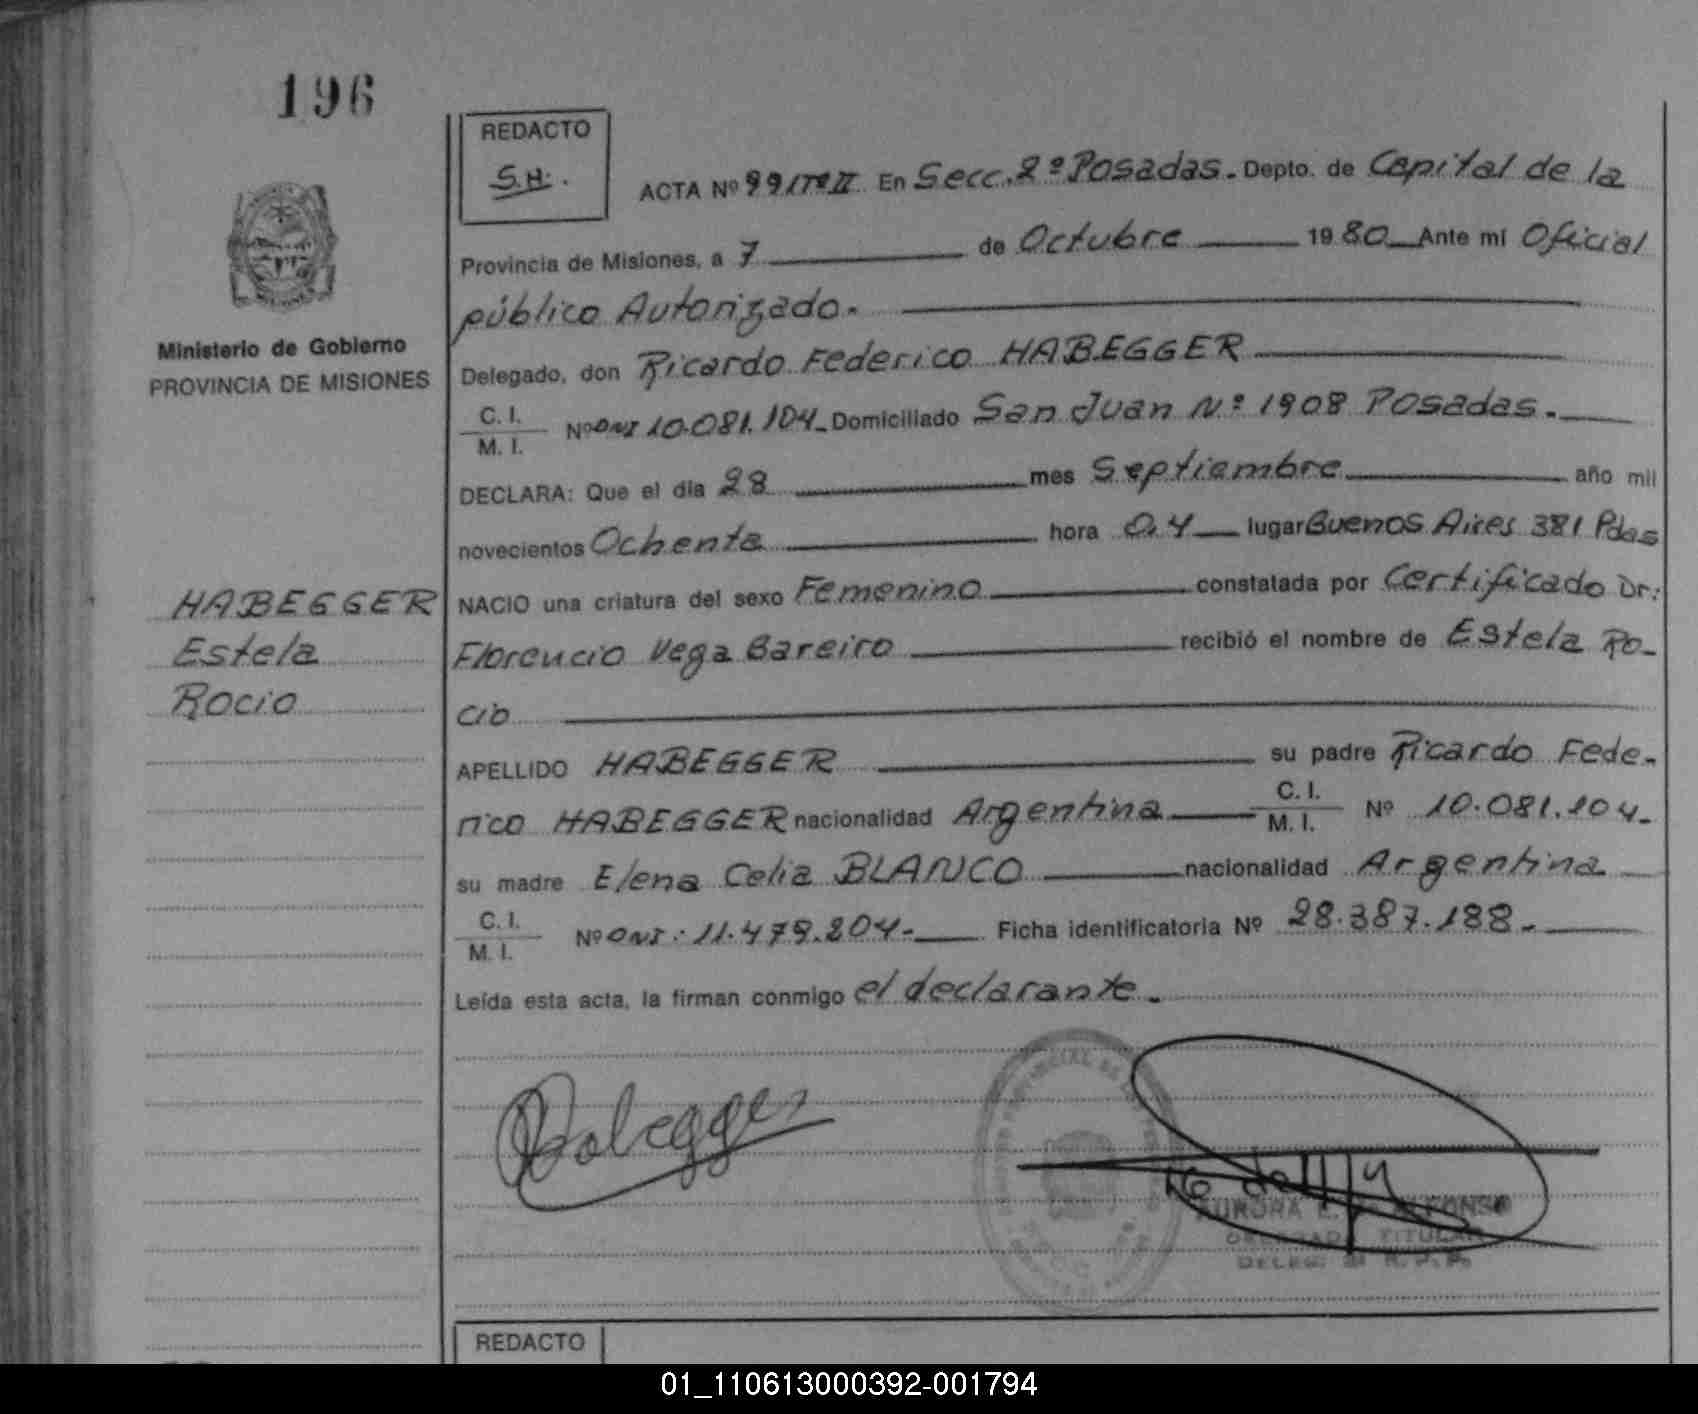 196
REDACTO
S.H.
ACTA Nº 99/TºII En Secc. 2º Posadas. Depto. de Capital de la
Provincia de Misiones, a 7 de Octubre 1980 Ante mi Oficial
público Autorizado.
Ministerio de Gobierno
PROVINCIA DE MISIONES
Delegado, don Ricardo Federico HABEGGER
C. I.
M. I. Nº DNI 10.081.104 Domiciliado San Juan Nº 1908 Posadas.
DECLARA: Que el dia 28 mes Septiembre año mil
novecientos Ochenta hora 0.4 lugar Buenos Aires 381 Pdas
HABEGGER
Estela
Rocio
NACIO una criatura del sexo Femenino constatada por Certificado Dr:
Florencio Vega Bareiro recibió el nombre de Estela Ro-
cio
APELLIDO HABEGGER su padre Ricardo Fede-
rico HABEGGER nacionalidad Argentina C. I. M. I. Nº 10.081.104.
su madre Elena Celia BLANCO nacionalidad Argentina
C. I.
M. I. Nº DNI: 11.479.204. Ficha identificatoria Nº 28.387.188.
Leída esta acta, la firman conmigo el declarante.
Habegger
AURORA E. DE ALFONSO
DELEGADA TITULAR
REDACTO
01_110613000392-001794